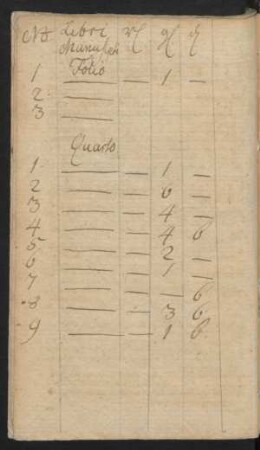 No Libri
Manusch
Folio
1 — — 1 —
2 —
3 —
Quarto
1 — — 1 —
2 — — 6 —
3 — — 4 —
4 — — 4 6
5 — — 2 —
6 — — 1 —
7 — — — 6
8 — — 3 6
9 — — 1 6